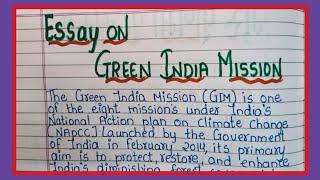 Essay on
Green India Mission
The Green India Mission (GIM) is one
of the eight missions under India's
National Action plan on Climate Change
[NAPCC] Launched by the Government
of India in february 2014, its primary
aim is to protect, restore, and enhance
India's diminishing forest